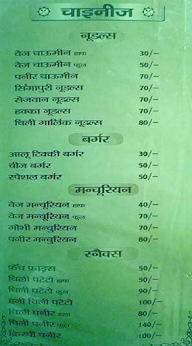 चाइनीज
नूडल्स
वेज चाऊमीन हाफ 30/-
वेज चाऊमीन फुल 50/-
पनीर चाऊमीन 70/-
सिंगापुरी नूडल्स 70/-
सेजवान नूडल्स 70/-
हक्का नूडल्स 70/-
चिली गार्लिक नूडल्स 80/-
बर्गर
आलू टिक्की बर्गर 30/-
चीज बर्गर 50/-
स्पेशल बर्गर 50/-
मन्चूरियन
वेज मन्चूरियन हाफ 40/-
वेज मन्चूरियन फुल 70/-
गोभी मन्चूरियन 70/-
पनीर मन्चूरियन 80/-
स्नैक्स
फ्रेंच फ्राइज 50/-
चिली पटेटो हाफ 50/-
चिली पटेटो फुल 90/-
हनी चिली पटेटो 100/-
चिली पनीर हाफ 80/-
चिली पनीर फुल 140/-
क्रिस्पी पनीर 100/-